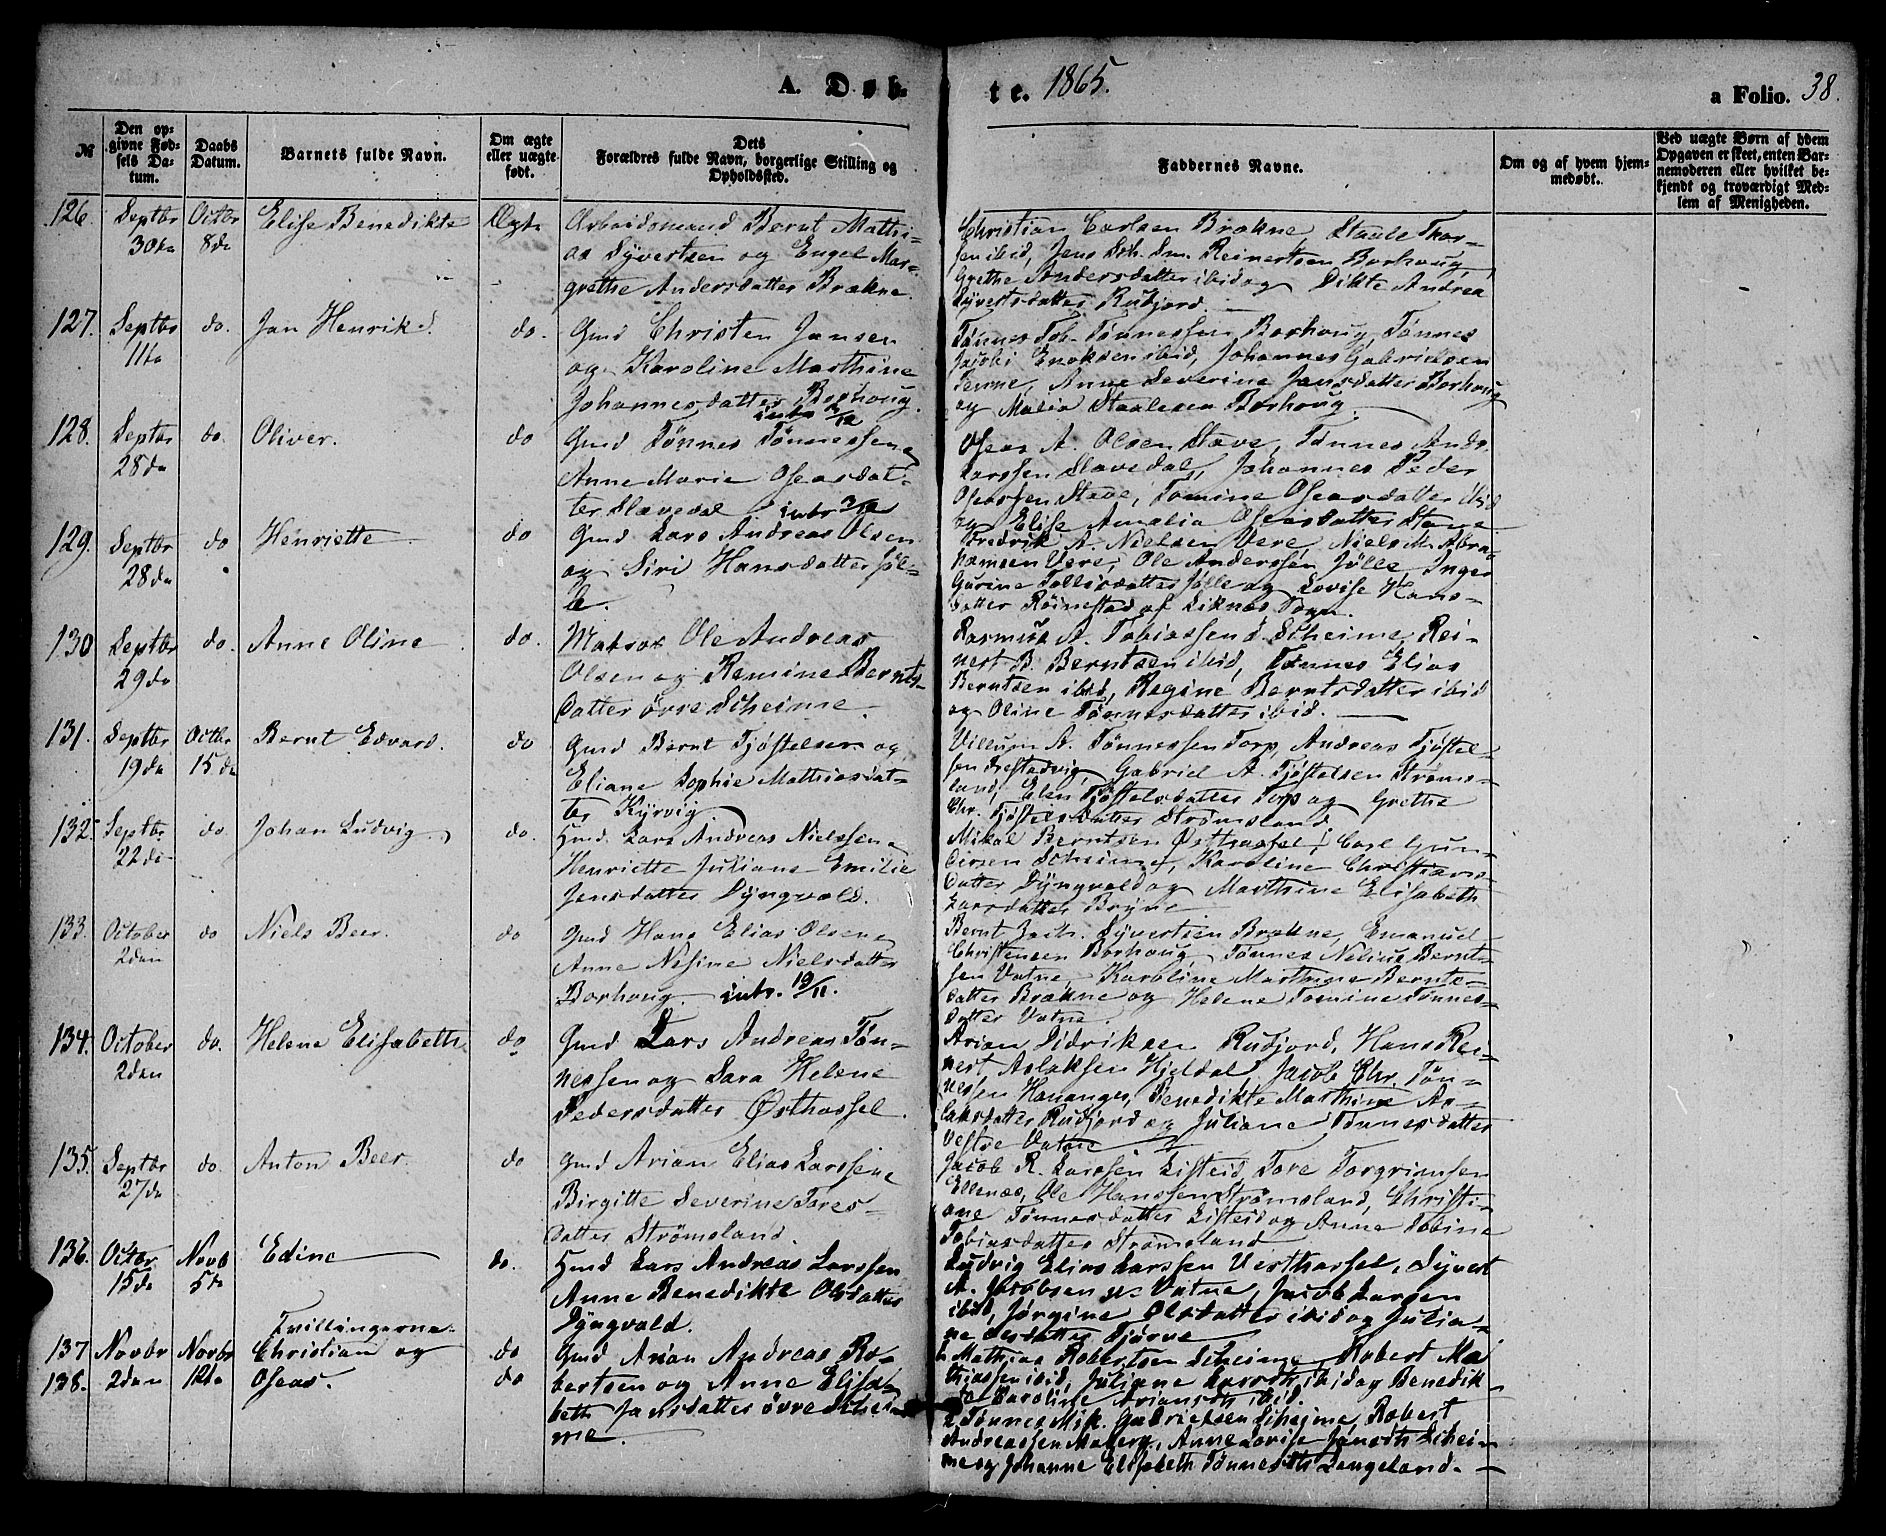 A. Døb-
te. 1865.
a Folio. 38.
№
Den op-
givne Fød-
sels Da-
tum.
Daabs
Datum.
Barnets fulde Navn.
Om ægte
eller uægte
født.
Dets
Forældres fulde Navn, borgerlige Stilling og
Opholdssted.
Faddernes Navne.
Om og af hvem hjem-
medøbt.
Ved uægte Børn af hvem
Opgaven er skeet, enten Bar-
nemoderen eller hvilket be-
kjendt og troværdigt Med-
lem af Menigheden.
126. Septbr 30te Octbr 8de Elise Benedikte Ægte Arbeidsmand Bernt Mathi-
as Syvertsen og Engel Mar-
grethe Andersdatter Brækne.
Christian Carlsen Brækne, Staale Thor-
sen ibid, Jens Reinertsen Borhoug,
Grethe Andersdatter ibid og Dikte Andrea
Syvertsdatter Rudjord.
127. Septbr 11te do. Jan Henrik do. Gmd Christen Jansen
og Karoline Marthine
Johannesdatter Borhoug.
Tønnes Tob. Tønnessen Borhoug, Tønnes
Jacobi Enoksen ibid, Johannes Gabrielsen
Anne Severine Jansdatter Borhoug
og Malia Staalesen Borhoug.
128. Septbr 28de do. Oliver. do intr.
Gmd Tønnes Tønnessen og
Anne Marie Oseasdat-
ter Stavedal intr 3/12
Oseas A. Olsen Stave, Tønnes Andr.
Larssen Stavedal, Johannes Peder
Oseassen Stave, Tomine Oseasdatter ibid
og Elise Amalia Oseasdatter Stave
129. Septbr 28de do Henriette do Gmd Lars Andreas Olsen
og Siri Hansdatter Jøl-
le.
Fredrik A. Nielsen Vere, Niels M. Abra-
hamsen Vere, Ole Anderssen Jølle, Inger
Gurine Tollisdatter Jølle og Lovise Hans-
datter Røinestad af Liknes Sogn.
130 Septbr 29de do. Anne Oline do. Matros Ole Andreas
Olsen og Remine Bernts-
datter øvre Scheime.
Rasmus A. Tobiassen Scheime, Rei-
nert B. Berntsen ibid, Tønnes Elias
Berntsen ibid, Regine Berntsdatter ibid
og Oline Tønnesdatter ibid.
131. Septbr 19de Octbr 15de Bernt Edvard. do Gmd Bernt Tjøstelsen og
Eliane Sophie Mathiasdat-
ter Kjørvig
Villum A. Tønnessen Torp, Andreas Tjøstel-
sen Gabriel A. Tjøstelsen Strøms-
land, Elen Tjøstelsdatter Torp og Grethe
Chr. Tjøstelsdatter Strømsland
132. Septbr 22de do. Johan Ludvig do. Hmd. Lars Andreas Nielssen og
Henriette Juliane Emilie
Jensdatter Dyngvold.
Mikal Berntsen Østhassel, Carl Gun-
dersen Scheime, Karoline Christians-
datter Dyngvold og Marthine Elisabeth
Larsdatter Bryne
133. October 2den do Niels Beer. do Gmd Hans Elias Olsen og
Anne Nisine Nielsdatter
Borhoug. intr. 19/11.
Bernt Syvertsen Brækne, Emanuel
Christensen Borhoug, Tønnes Nelius Bernt-
sen Vatne, Karoline Marthine Bernts-
datter Brækne og Helene Tomine Tønnes-
datter Vatne.
134. October 2den do. Helene Elisabeth do Gmd Lars Andreas Tøn-
nessen og Sara Helene
Pedersdatter Østhassel.
Arian Didriksen Rudjord, Hans Rei-
nert Aslaksen Hjeldal, Jacob Chr. Tøn-
nessen Hananger, Benedikte Marthine As-
laksdatter Rudjord og Juliane Tønnesdatter
Vestre Vatne
135. Septbr 27de do. Anton Beer. do Gmd Arian Elias Larssen og
Birgitte Severine Tores-
datter Strømsland.
Jacob R. Larssen Listeid, Tore Torgrimsen
Ellenæs, Ole Hanssen Strømsland, Christi-
ane Tønnesdatter Listeid og Anne Tobine
Tobiasdatter Strømsland
136. Octbr 15de Novb 5te Edine do. Hmd Lars Andreas Larssen
Anne Benedikte Olsdatter
Dyngvold.
Ludvig Elias Larssen Vesthassel, Syvert
A. Jacobsen Vatne, Jacob Larsen
ibid, Jørgine Olsdatter ibid og Julia-
ne Olsdatter Tjørve
Tvillingerne
137 Novbr 2den Novbr 12te Christian og do Gmd Arian Andreas Ro-
138. Oseas. do bertsen og Anne Elisa-
beth Jansdatter øvre Schei-
me.
1 Mathias Robertsen Scheime, Robert Ma
thiassen ibid, Juliane Larsdtr ibid og Benedik-
te Caroline Ariansdtr ibid.
2 Tønnes Mik. Gabrielsen Scheime, Robert
Andreassen Anne Lovise Jansdtr Schei-
me og Johanne Elisabeth Tønnesdtr Lengeland.